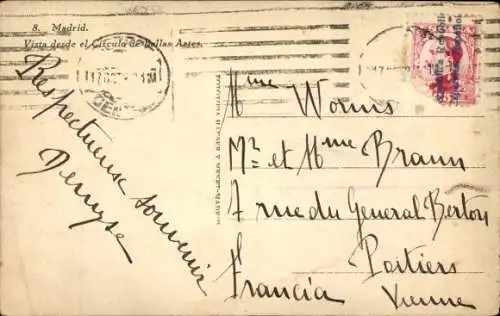 8. Madrid.
Vista desde el Círculo de Bellas Artes.
Respectueux souvenir
Denyse
Mme Worms
Mr et Mme Braun
7 rue du General Berton
Poitiers
Francia Vienne